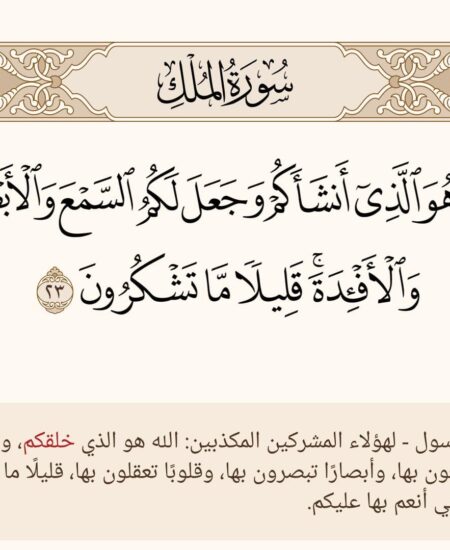 سُورَةُ المُلْكِ
هُوَ ٱلَّذِىٓ أَنشَأَكُمْ وَجَعَلَ لَكُمُ ٱلسَّمْعَ
وَٱلْأَفْـِٔدَةَ ۖ قَلِيلًا مَّا تَشْكُرُونَ ٢٣
لهؤلاء المشركين المكذبين: الله هو الذي خلقكم،
بها، وأبصارًا تبصرون بها، وقلوبًا تعقلون بها، قليلًا ما
أنعم بها عليكم.